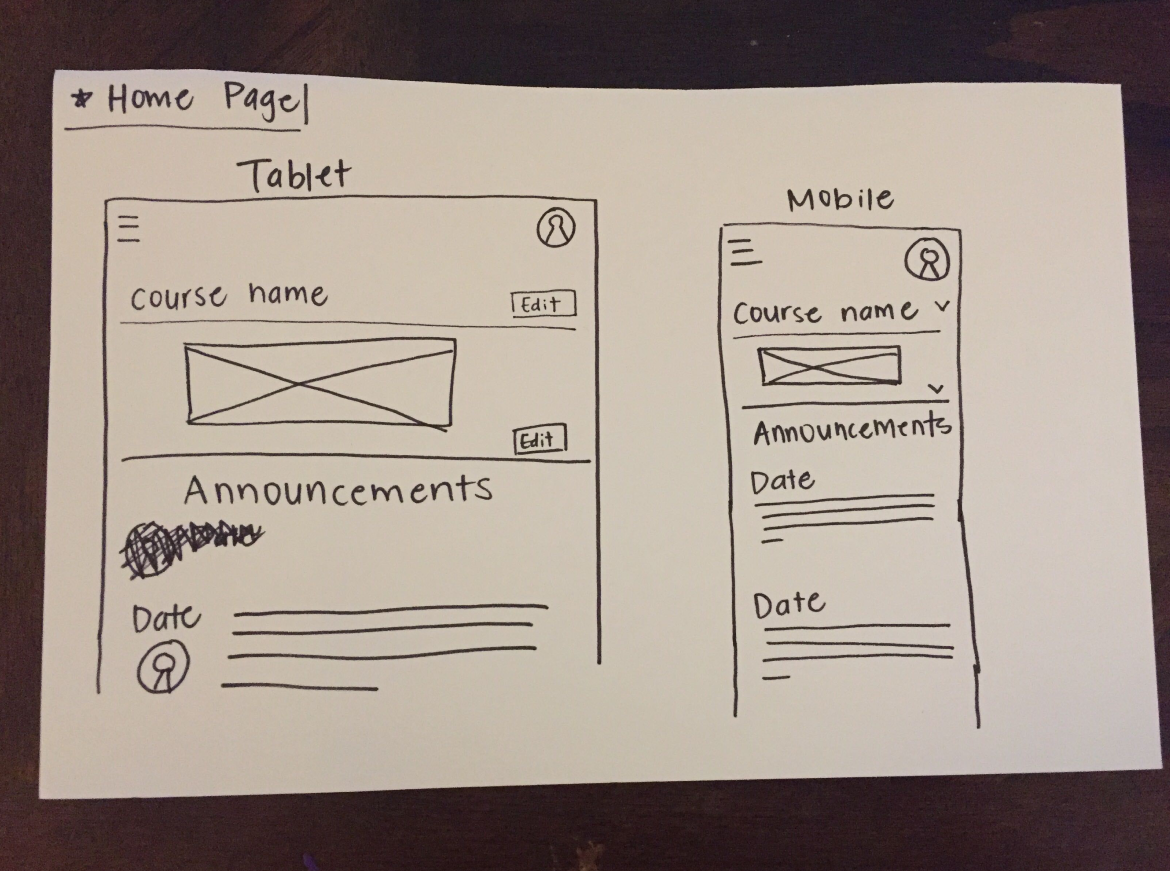 * Home Page
Tablet
Course name
Edit
Edit
Announcements
Date
Mobile
Course name
Announcements
Date
Date